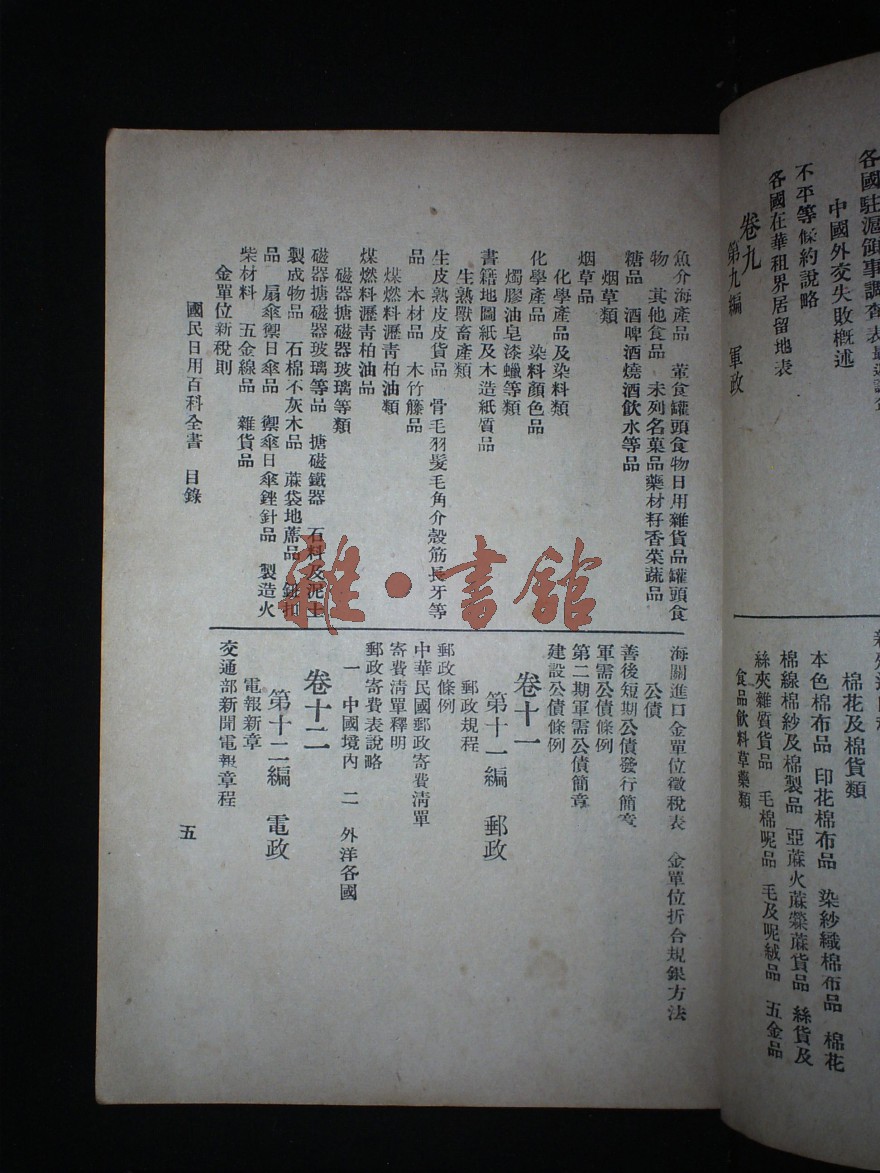 各國駐滬領事調查表
中國外交失敗概述
不平等條約說略
各國在華租界居留地表
卷九
第九編 軍政
棉花及棉貨類
本色棉布品 印花棉布品 染紗織棉布品 棉花
棉線棉紗及棉製品 亞蔴火蔴蘃蔴貨品 絲貨及
絲夾雜質貨品 毛棉呢品 毛及呢絨品 五金品
食品飲料草藥類
魚介海產品 葷食罐頭食物日用雜貨品罐頭食
物 其他食品 未列名菓品藥材籽香菜蔬品
糖品 酒啤酒燒酒飲水等品
烟草類
烟草品
化學產品及染料類
化學產品 染料顏色品
燭膠油皂漆蠟等類
書籍地圖紙及木造紙質品
生熟獸畜產類
生皮熟皮皮貨品 骨毛羽髮毛角介殼筋長牙等
品 木材品 木竹籐品
煤燃料瀝青柏油類
煤燃料瀝青柏油品
磁器搪磁器玻璃等類
磁器搪磁器玻璃等品 搪磁鐵器 石料及泥土
製成物品 石棉不灰木品 蔴袋地蓆品 鈕扣
品 扇傘禦日傘品 禦傘日傘銼針品 製造火
柴材料 五金線品 雜貨品
金單位新稅則
海關進口金單位徵稅表 金單位折合規銀方法
公債
善後短期公債發行簡章
軍需公債條例
第二期軍需公債簡章
建設公債條例
卷十一
第十一編 郵政
郵政規程
郵政條例
中華民國郵政寄費清單
寄費清單釋明
郵政寄費表說略
一 中國境內 二 外洋各國
卷十二
第十二編 電政
電報新章
交通部新聞電報章程
國民日用百科全書 目錄
五
雜·書館